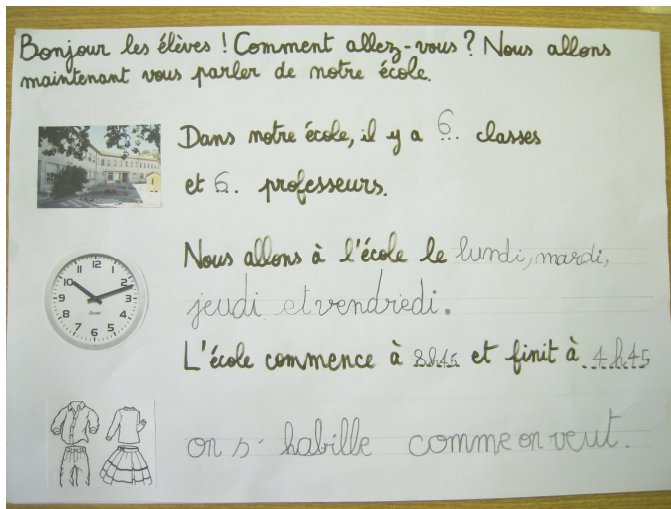 Bonjour les élèves ! Comment allez-vous ? Nous allons
maintenant vous parler de notre école.
Dans notre école, il y a 6 classes
et 6 professeurs.
12
11 1
10 2
9 3
8 4
7 5
6
Nous allons à l'école le lundi, mardi,
jeudi et vendredi.
L'école commence à 8h45 et finit à 4h45
on s'habille comme on veut.